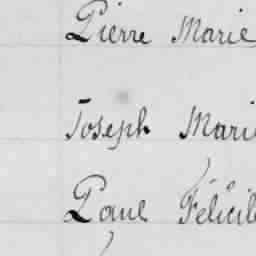 Pierre Marie
Joseph Marie
Paul Félici